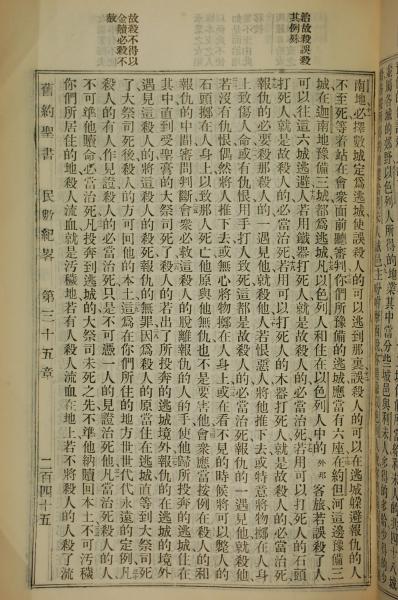 治故殺誤殺
其例殊
故殺不得以
金贖必殺不
赦
南地必擇數城定為逃城使誤殺人的可以逃到那裏誤殺人的可以在逃城躲避報仇的人
不至死等着站在會衆面前聽審判你們所豫備的逃城應當有六座在約但河這邊豫備三
城在迦南地豫備三城都為逃城凡以色列人和住在以色列人中的外邦客旅若誤殺了人
可以往這六城逃避人若用鐵器打死人就是故殺人的必當治死若用可以打死人的石頭
打死人就是故殺人的必當治死若用可以打死人的木器打死人就是故殺人的必當治死
報仇的必要殺那殺人的一遇見他就殺他人若恨惡人將他推下去或特意將物擲在人身
上致傷人命或有仇恨用手打人致死這都是故殺人的必當治死報仇的一遇見他就殺他
若沒有仇恨偶然將人推下去或無心將物擲在人身上或在看不見的時候將可以斃人的
石頭擲在人身上以致那人死亡他原與他無仇也不是要害他會衆應當按例在殺人的和
報仇的中間審問判斷會衆必救這殺人的脫離報仇的人的手使他歸所投奔的逃城住在
其中直到受聖膏的大祭司死了殺人的若出了所投奔的逃城境外報仇的在逃城的境外
遇見這殺人的將這殺人的殺死報仇的無罪因為殺人的原當住在逃城直等到大祭司死
了大祭司死後殺人的方可回他的本土這為在你們所住的地方世世代代永遠的定例凡
殺人的有人作見證殺人的必當治死只是不可憑一人的見證治死他凡故殺人當治死的
不可準他贖命必當治死凡投奔到逃城的大祭司未死之先不準他納贖回本土不可汚穢
你們所居住的地殺人流血就是汚穢地若有人殺人流血在地上若不將殺人的人殺了流
舊約聖書 民數紀畧 第三十五章 二百四十五